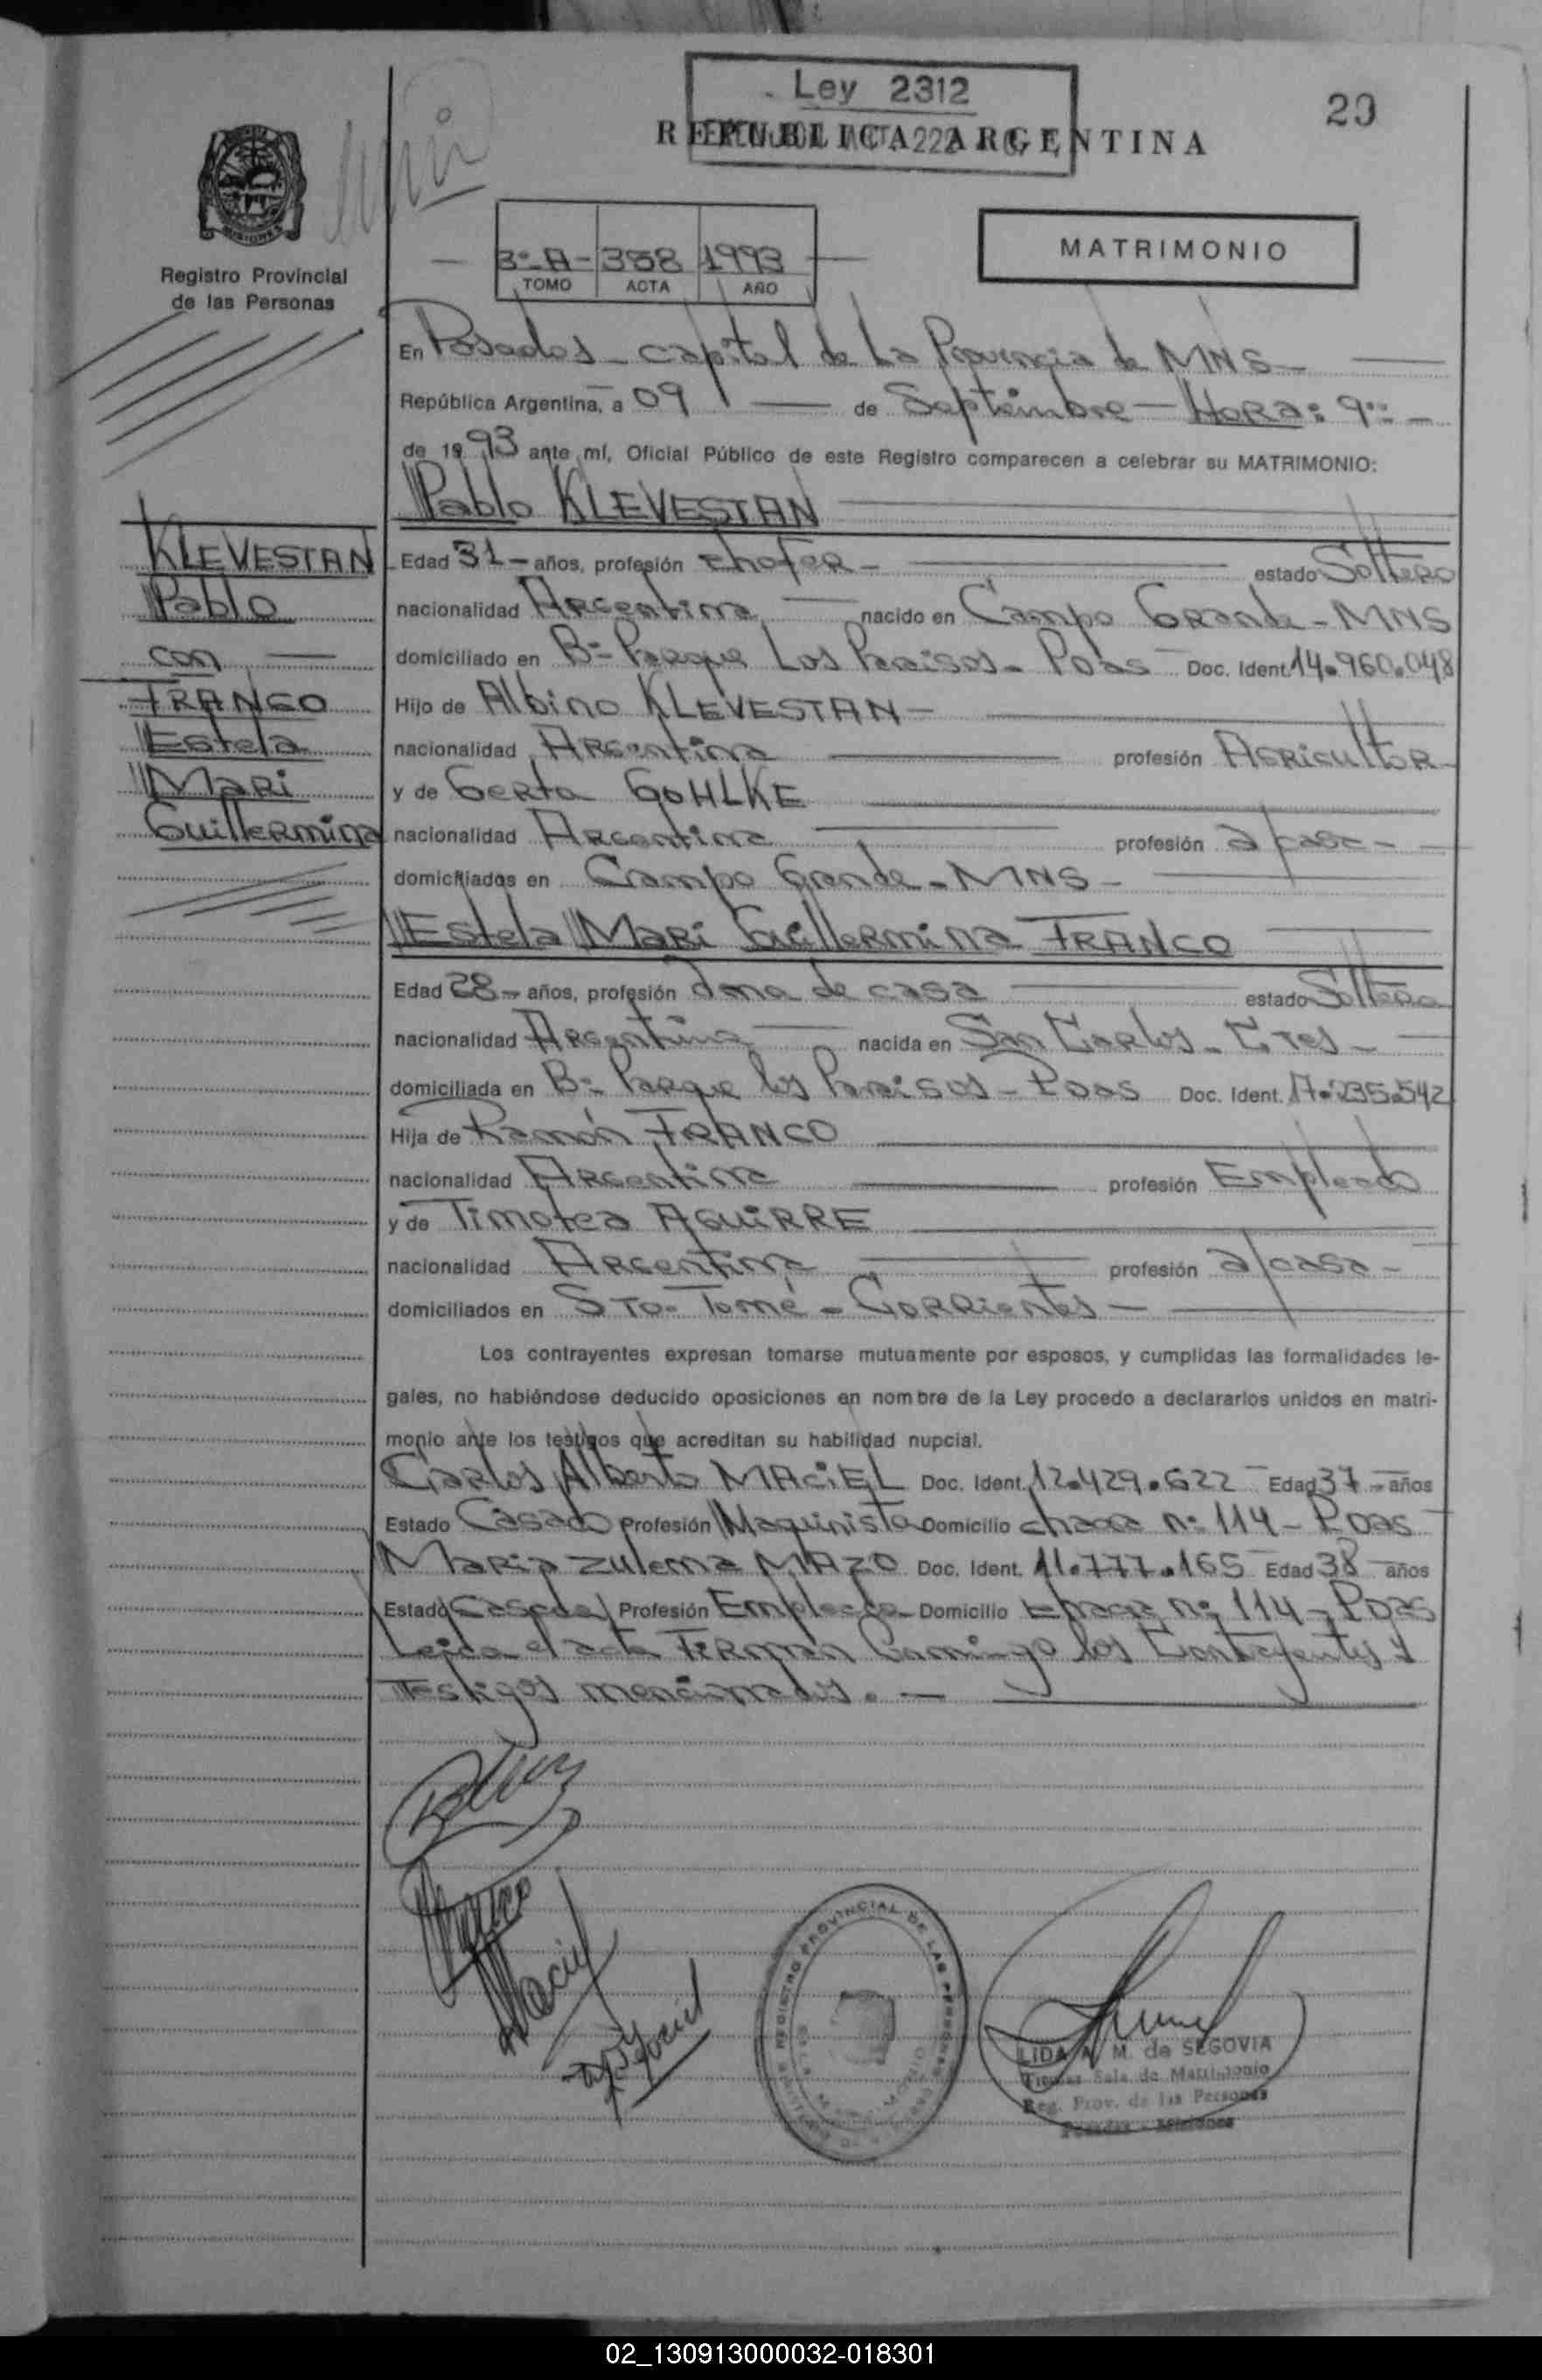 Ley 2312
20
REPUBLICA ARGENTINA
MISIONES
Registro Provincial
de las Personas
3º-A- 358 1993
TOMO ACTA AÑO
MATRIMONIO
En Posadas - capital de La Provincia de MNS -
República Argentina, a 09 de Septiembre - HORA: 9:: -
de 1993 ante mí, Oficial Público de este Registro comparecen a celebrar su MATRIMONIO:
KLEVESTAN
Pablo
con
FRANCO
Estela
Mari
Guillermina
Pablo KLEVESTAN
Edad 31 - años, profesión chofer - estado Soltero
nacionalidad Argentina nacido en Campo Grande - MNS
domiciliado en Bº Parque Los Paraisos - Pdas Doc. Ident. 14.960.048
Hijo de Albino KLEVESTAN -
nacionalidad Argentina profesión Agricultor -
y de Gerta GOHLKE
nacionalidad Argentina profesión a/casa -
domiciliados en Campo Grande - MNS -
Estela Mari Guillermina FRANCO
Edad 28 - años, profesión ama de casa estado Soltera
nacionalidad Argentina nacida en San Carlos - Ctes -
domiciliada en Bº Parque los Paraisos - Pdas Doc. Ident. 17.235.542
Hija de Ramón FRANCO
nacionalidad Argentina profesión Empleado
y de Timotea AGUIRRE
nacionalidad Argentina profesión a/casa -
domiciliados en Sto. Tomé - Corrientes -
Los contrayentes expresan tomarse mutuamente por esposos, y cumplidas las formalidades le-
gales, no habiéndose deducido oposiciones en nombre de la Ley procedo a declararlos unidos en matri-
monio ante los testigos que acreditan su habilidad nupcial.
Carlos Alberto MACIEL Doc. Ident. 12.429.622 - Edad 37 - años
Estado Casado Profesión Maquinista Domicilio chacra nº 114 - Pdas
Maria Zulema MAZO Doc. Ident. 11.777.165 Edad 38 años
Estado Casada Profesión Empleada - Domicilio chacra nº 114 - Pdas
Leida el acta Firman Conmigo los Contrayentes y
Testigos mencionados. -
Maciel
REGISTRO PROVINCIAL DE LAS PERSONAS
LIDA A. M. de SEGOVIA
Sala de Matrimonio
Reg. Prov. de las Personas
Posadas - Misiones
02_130913000032-018301